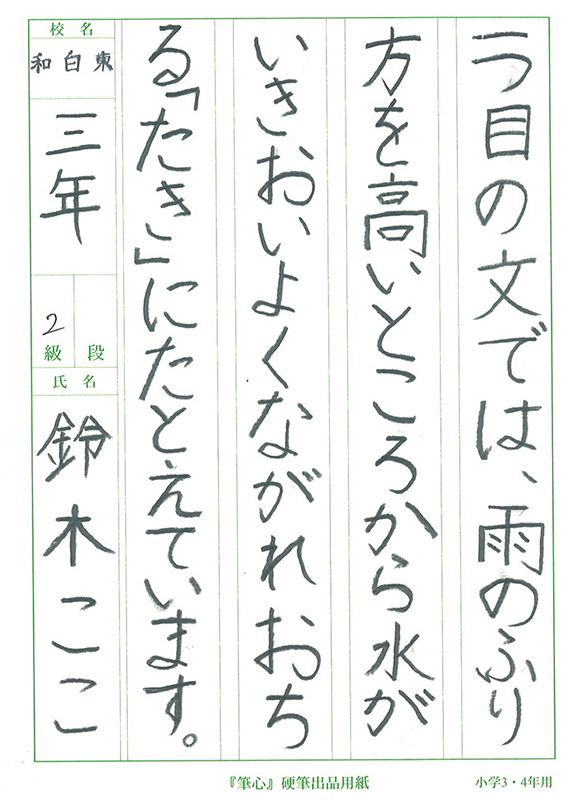 二つ目の文では、雨のふり
方を高いところから水が
いきおいよくながれおち
る「たき」にたとえています。
校名
和白東
三年
2
級 段
氏名
鈴木ここ
『筆心』硬筆出品用紙
小学3・4年用